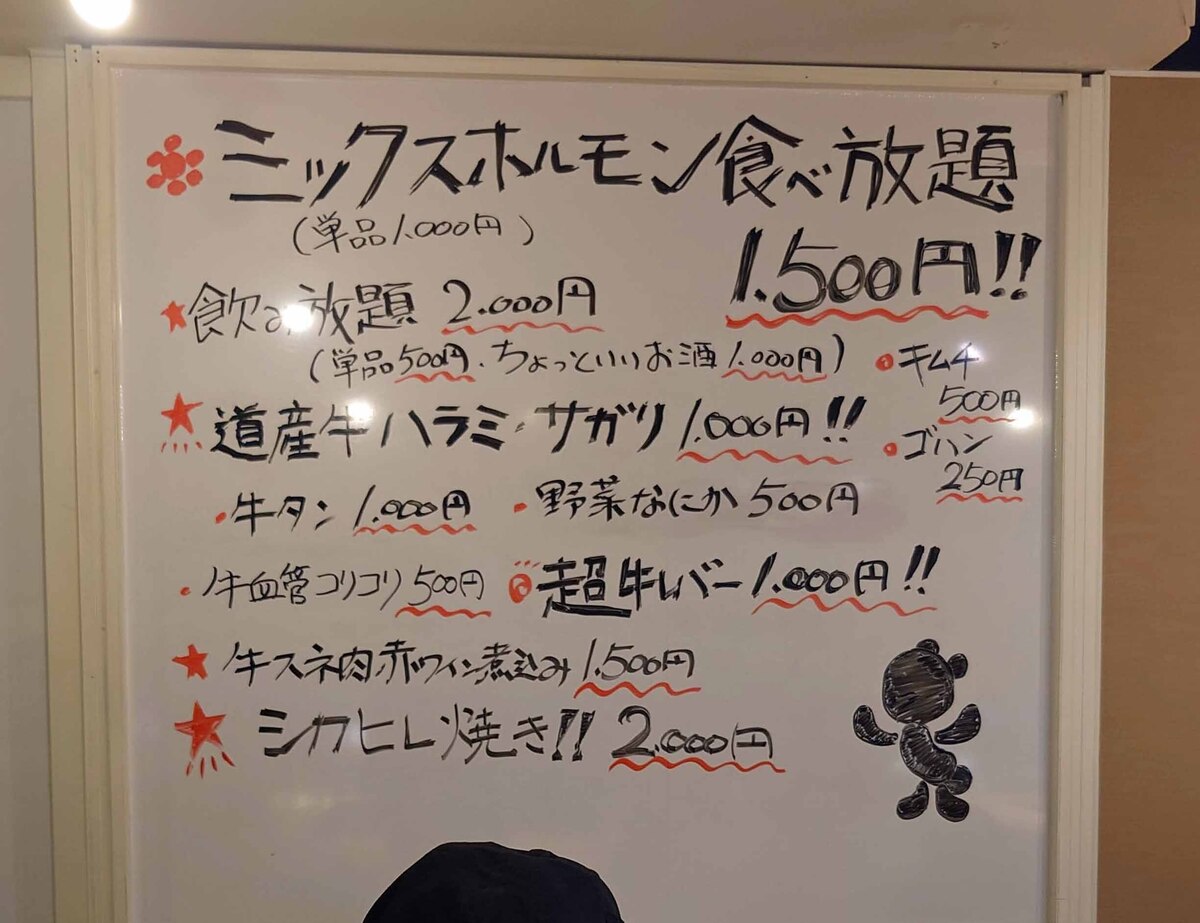 ミックスホルモン食べ放題
(単品1.000円)
1.500円!!
飲み放題 2.000円
(単品500円.ちょっといいお酒1.000円)
キムチ
500円
道産牛ハラミ・サガリ 1.000円!!
ゴハン
250円
・牛タン 1.000円 ・野菜なにか 500円
・牛血管コリコリ 500円 超牛レバー 1.000円!!
★牛スネ肉赤ワイン煮込み 1.500円
★シカヒレ焼き!! 2.000円